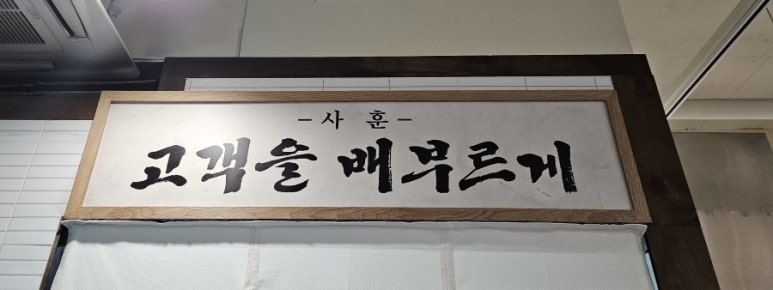 -사훈-
고객을 배부르게